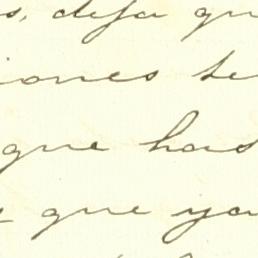 s, deja qu
iones te
que has
y que ya